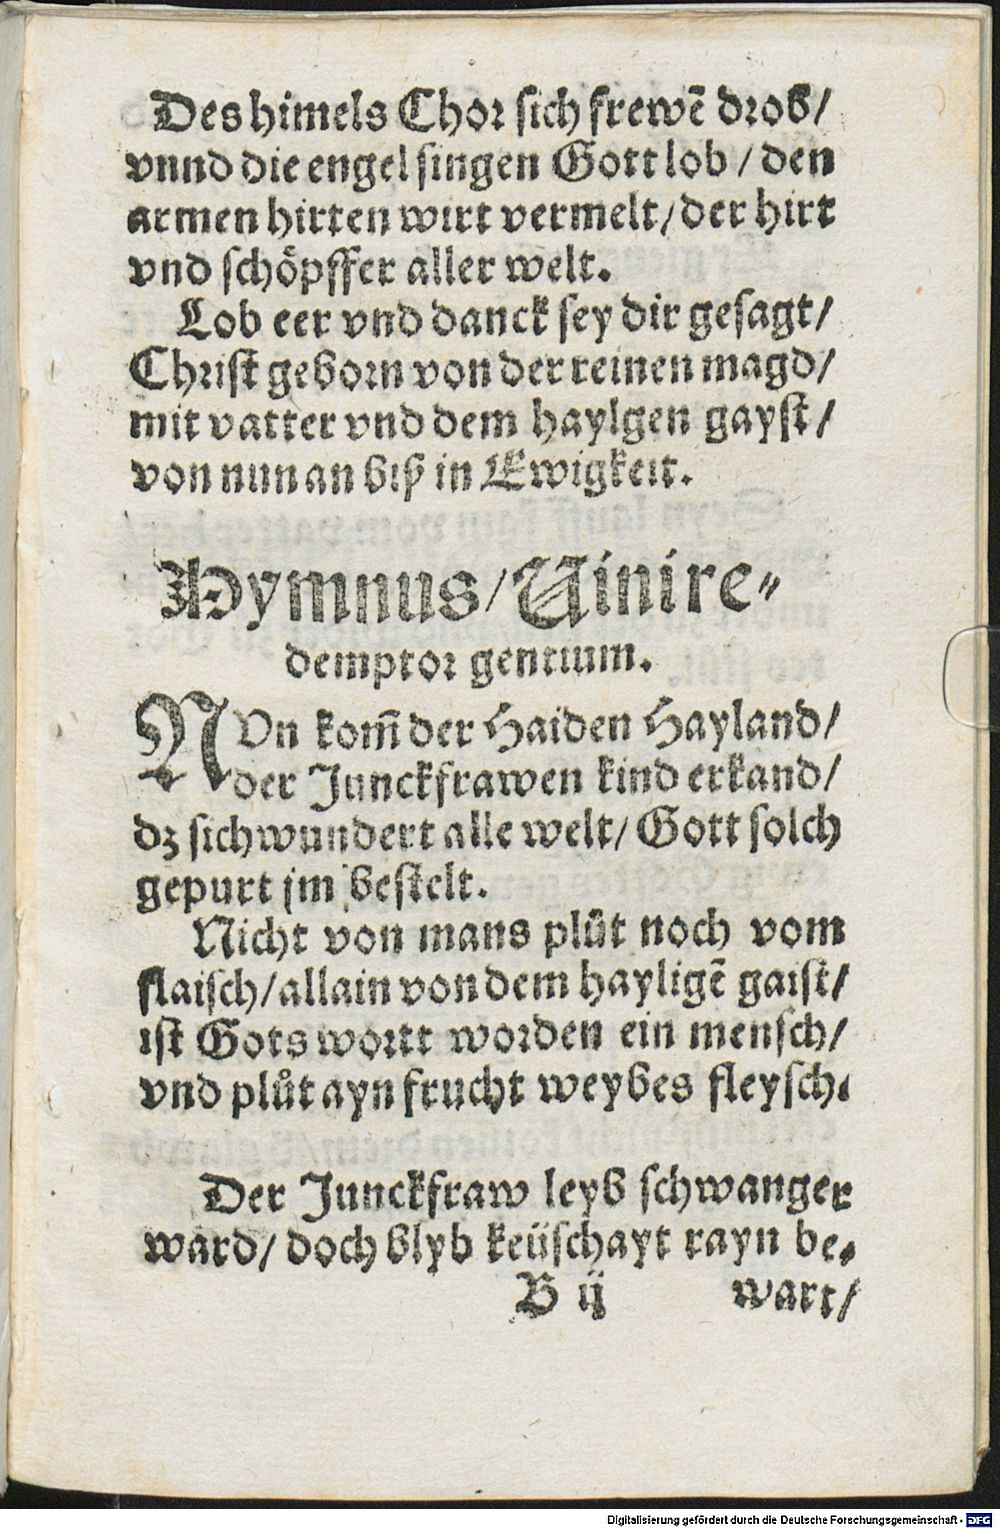 Des himels Chor sich frewē drob/
vnnd die engel singen Gott lob / den
armen hirten wirt vermelt/ der hirt
vnd schöpffer aller welt.
Lob eer vnd danck sey dir gesagt/
Christ geborn von der reinen magd/
mit vatter vnd dem haylgen gayst/
von nun an biß in Ewigkeit.
Hymnus/ Uini re⸗
demptor gentium.
NVn kom̄ der Haiden Hayland/
der Junckfrawen kind erkand/
dz sich wundert alle welt/ Gott solch
gepurt jm bestelt.
Nicht von mans plůt noch vom
flaisch/ allain von dem hayligē gaist/
ist Gots wortt worden ein mensch/
vnd plůt ayn frucht weybes fleysch.
Der Junckfraw leyb schwanger
ward/ doch blyb keüschayt rayn be⸗
B ij wart/
Digitalisierung gefördert durch die Deutsche Forschungsgemeinschaft - DFG